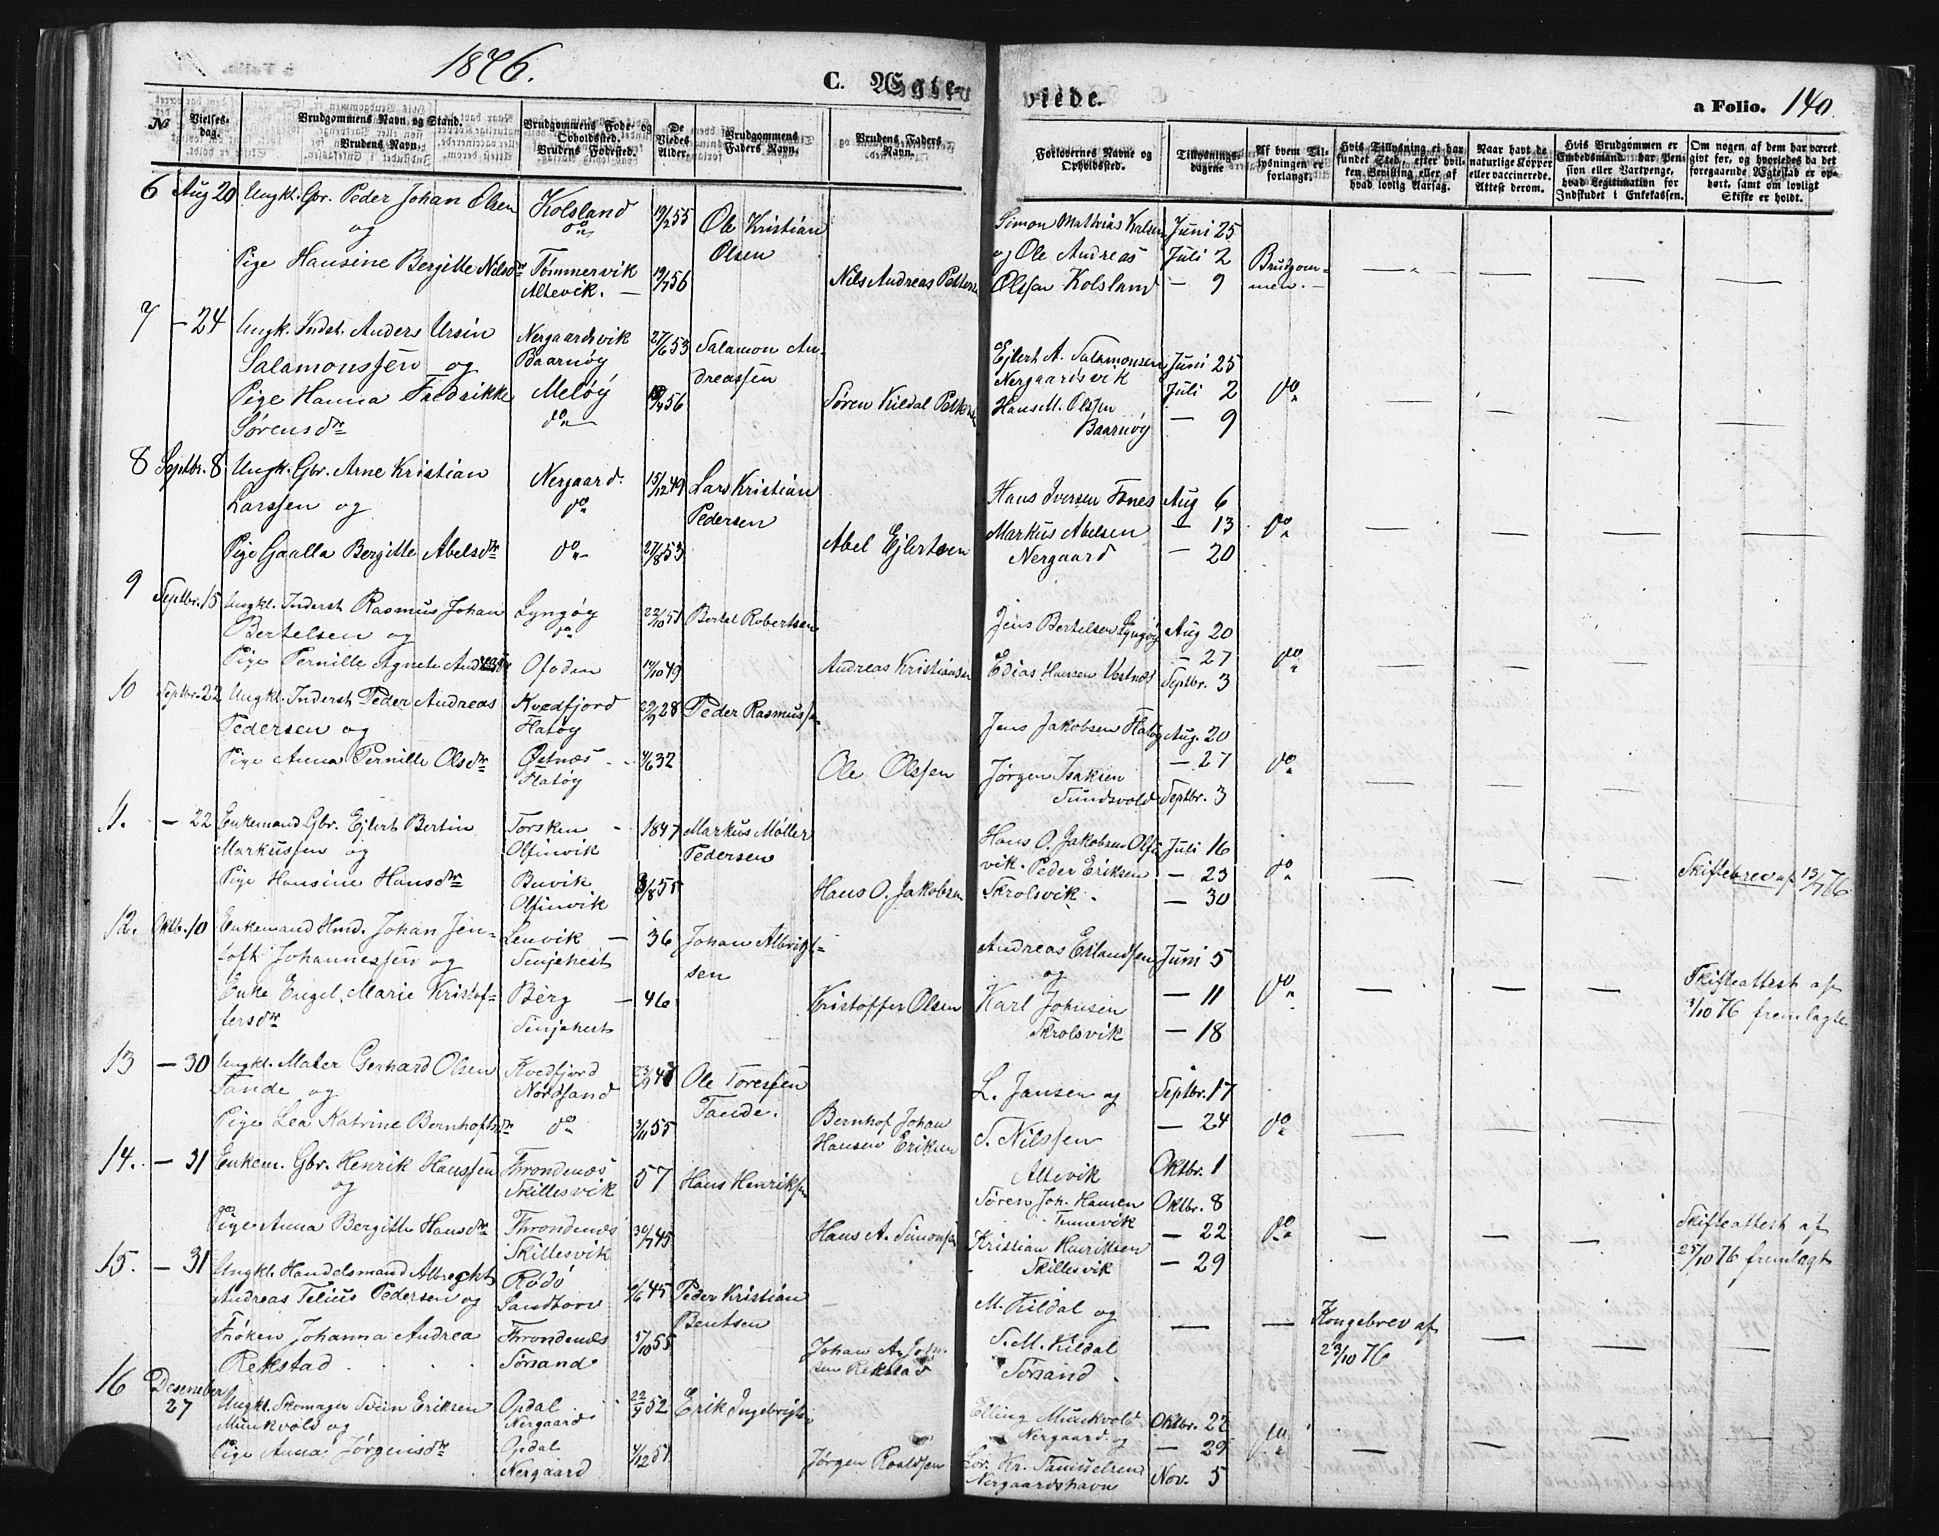 1876.
C. Ægte-
viede.
a Folio. 140
No
Vielses-
dag.
Brudgommens Navn og Stand.
Brudens Navn.
Brudgommens Føde- og
Opholdssted.
Brudens Fødested.
De
Viedes
Alder.
Brudgommens
Faders Navn.
Brudens Faders
Navn.
Forlovernes Navne og
Opholdssted.
Tillysnings-
dagene
Af hvem Til-
lysningen er
forlangt.
Hvis Tillysning ei har
fundet Sted, efter hvil-
ken Bevilling eller af
hvad lovlig Aarsag.
Naar havt de
naturlige Kopper
eller vaccinerede.
Attest derom.
Hvis Brudgommen er
Embedsmand, har Pen-
sion eller Vartpenge,
hvad Legitimation for
Indskudet i Enkekassen.
Om nogen af dem har været
gift før, og hvorledes da det
foregaaende Ægteskab er op-
hørt, samt om lovligt
Skifte er holdt.
6 Aug 20 Ungk. Gbr. Peder Johan Olsen Kolsland 19/2 55 Ole Kristian Simon Mathias Kalsen Juni 25
og do Olsen og Ole Andreas Juli 2 Brudgom-
Pige Hansine Bergitte Nilsdr Tømmervik 19/7 56 Nils Andreas Pettersen Olsen Kolsland — 9 men. — — — — —
Altevik. —
7 — 24 Ungk. Indst. Anders Ursin Nergaardsvik 27/6 53 Salamon An- Ejlert A. Salamonsen Juni 25
Salamonssen og Baarnøy dreassen Nergaardsvik
Pige Hanna Fredrikke Meløy 56 Søren Kildal Pettersen Hans M. Olssen Juli 2 do — — — —
Sørensdr do Baarnøy — 9
8 Septbr. 8 Ungk. Gbr. Arne Kristian Nergaard. 15/12 49 Lars Kristian Hans Iversen Fones Aug 6
Larssen og do Pedersen Markus Abelsen — 13 do — — — —
Pige Gaalla Bergitte Abelsdr do 27/8 53 Abel Ejlertsen Nergaard — 20
9 Septbr. 15 Ungkl. Inderst Rasmus Johan Lyngøy 22/10 51 Bertel Robertsen Jens Bertelsen Lyngøy Aug 20
Bertelsen og do — 27 do — — — —
Pige Pernille Agnete Ofoden 14/10 49 Andreas Kristiansen Edias Hansen Vestnæs Septbr. 3
10 Septbr. 22 Ungkl. Inderst Peder Andreas Kvædfjord 28 Peder Rasmussen Jens Jakobsen Flatøy Aug. 20
Pedersen og Flatøy — 27 do — — — —
Pige Anna Pernille Olsdr 4/6 32 Ole Olssen Jørgen Isaksen
Flatøy Sundsvold Septbr. 3
11. — 22 Enkemand Gbr. Ejlert Bertin Torsken 1847 Markus Møller Hans O. Jakobsen Olfin Juli 16
Markussen og Olfinvik Pedersen vik. Peder Eriksen — 23 do — — — — Skiftebrev af 13/7 76
Pige Hansine Hansdr Buvik 3/8 55 Hans O. Jakobsen Skrolsvik. — 30
Olfinvik
12. Oktb. 10 Enkemand Hmd. Johan Jen- Lenvik — 36 Johan Albrigt- Andreas Erlandsen Juni 5
toft Johannessen og Senjehest sen og
Enke Engel Marie Kristof- Berg — 46 Kristoffer Olsen Karl Johnsen — 11 do — — — Skifteattest af
fersdr Senjehest Skrolsvik — 18 3/10 76 fremlagte
13 — 30 Ungkl. Maler Gerhard Olsen Kvedfjord Ole Toressen L. Jansen og Septbr. 17
Tande og Nordsand Tande.
Pige Lea Katrine Bernhoftsdr do 3/11 55 Bernhof Johan S. Nilssen — 24 do — — — —
Hansen Eriksen
14. — 31 Enkem. Gbr. Henrik Hanssen Throndenæs 57 Hans Henriksen Altevik Oktbr. 1
og Skillesvik Søren Joh. Hansen Oktbr. 8
Tennevik
Pige Anna Bergitte Hansdr Throndenæs 30/7 45 Hans A. Simonsen Kristian Henriksen — 22 do — — — Skifteattest af
Skillesvik Skillesvik — 29 25/10 76 fremlagt
15. — 31 Ungkl. Handelsmand Albrecht Rødø 6/6 45 Peder Kristian M. Kildal og Kongebrev af
Andreas Telius Pedersen og Sandtorv Bentsen — — 23/10 76 — — —
Frøken Johanna Andrea Throndenæs 17/10 55 Johan A. S. M. Kildal
Rekstad Sørsand sen Rekstad Sørsand
16 Desember
27 Ungkl. Skomager Svein Eriksen Opdal 22/9 52 Erik Ingebrigtsen Elling Munkvold Oktbr. 22
Munkvold og Nergaard Nergaard og — 29 do — — — —
Pige Anna Jørgensdr Opdal 4/12 51 Jørgen Roaldsen Nov. 5
Nergaard Nergaardshavn